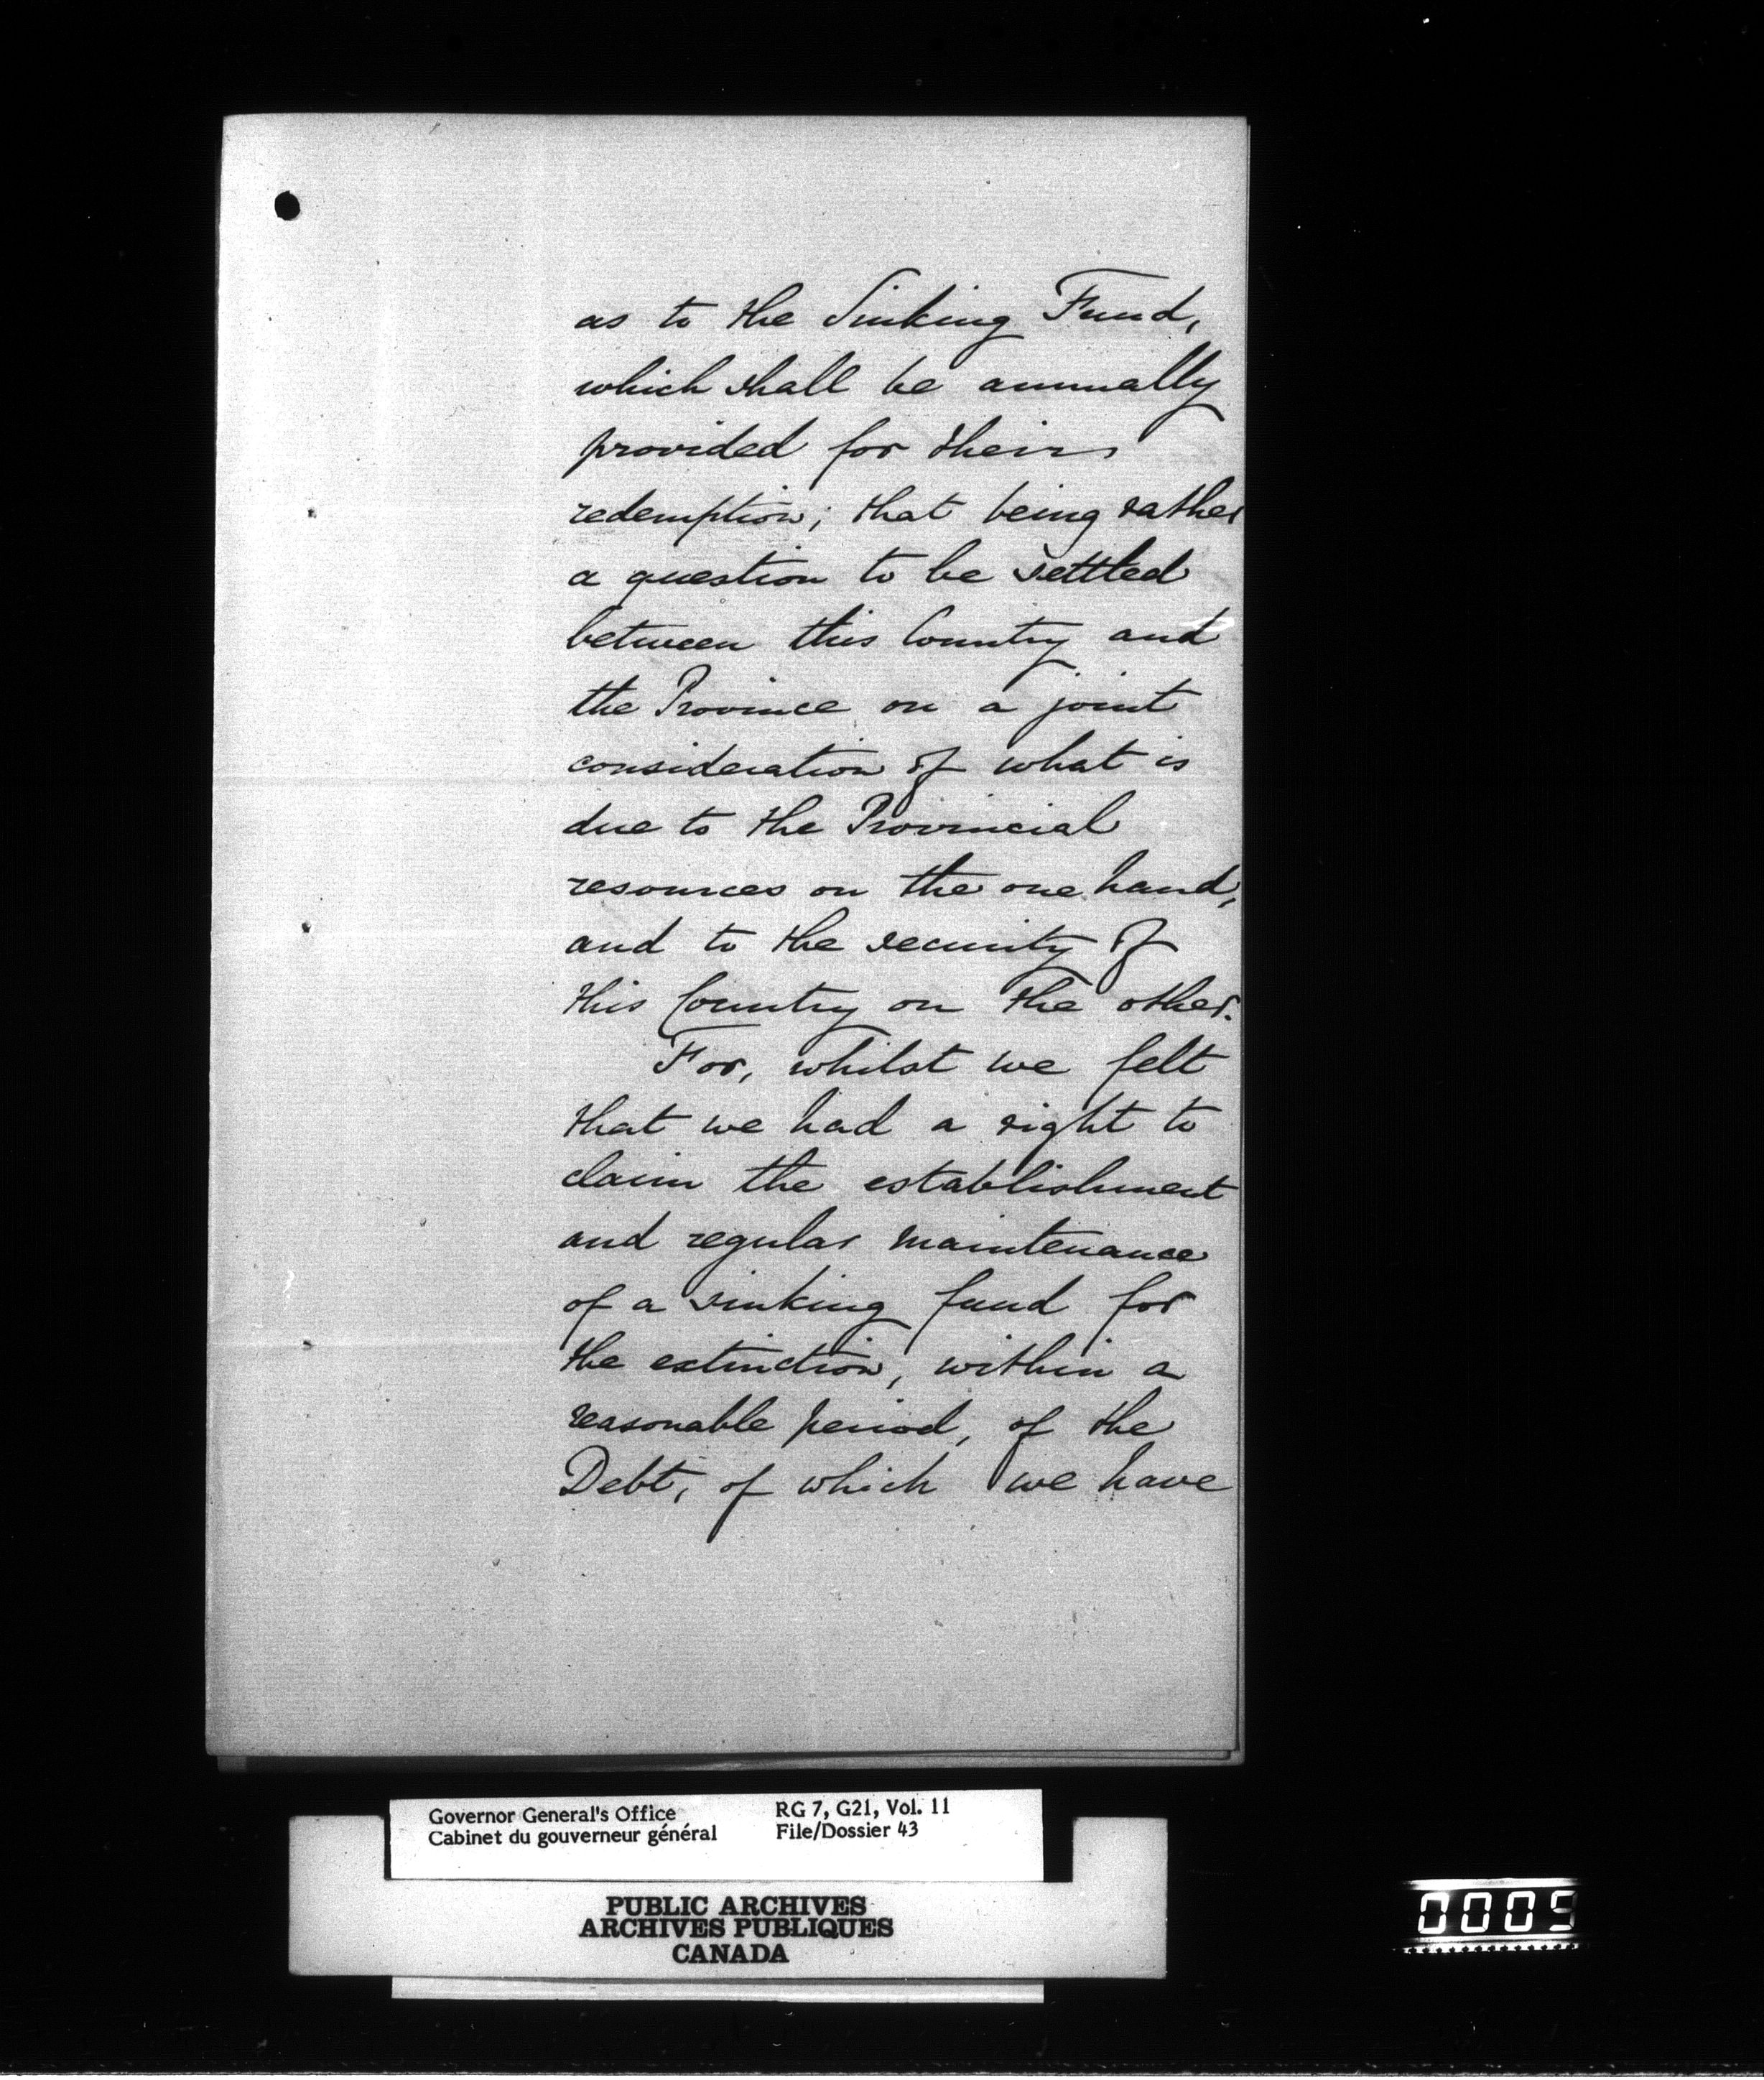 as to the Sinking Fund,
which shall be annually
provided for their
redemption; that being rather
a question to be settled
between this Country and
the Province on a joint
consideration of what is
due to the Provincial
resources on the one hand,
and to the security of
this Country on the other.
For, whilst we felt
that we had a right to
claim the establishment
and regular maintenance
of a sinking fund for
the extinction, within a
reasonable period, of the
Debt, of which we have
Governor General's Office RG 7, G21, Vol. 11
Cabinet du gouverneur général File/Dossier 43
PUBLIC ARCHIVES
ARCHIVES PUBLIQUES
CANADA
0005